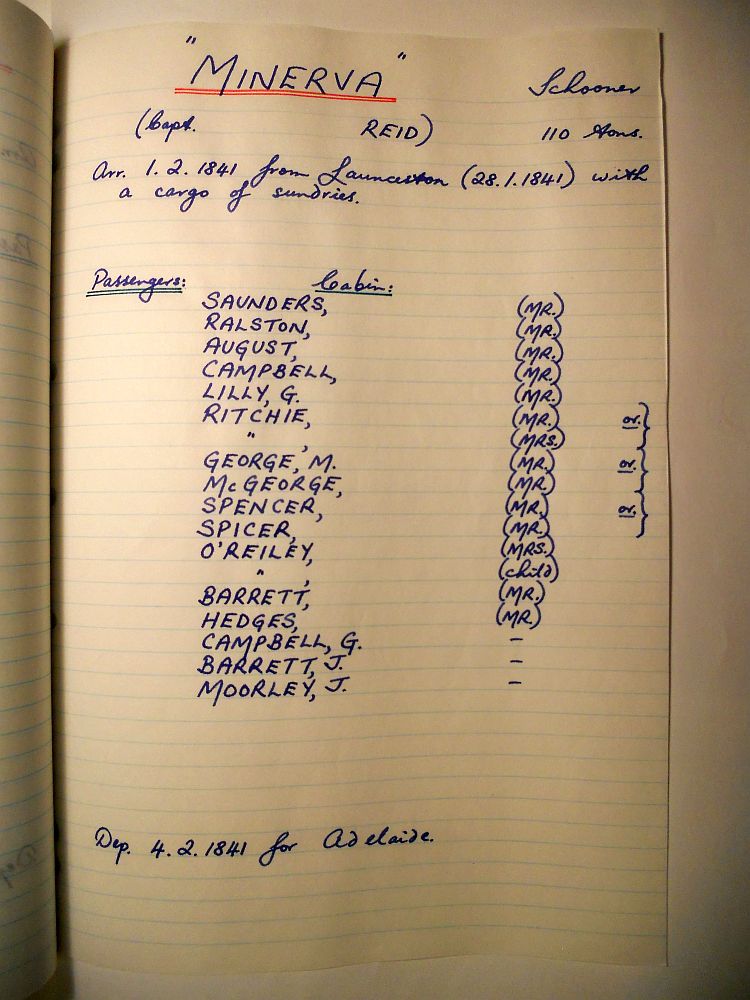 "MINERVA" Schooner
(Capt. REID) 110 tons.
Arr. 1.2.1841 from Launceston (28.1.1841) with
a cargo of sundries.
Passengers: Cabin:
SAUNDERS, (MR.)
RALSTON, (MR.)
AUGUST, (MR.)
CAMPBELL, (MR.)
LILLY, G. (MR.)
RITCHIE, (MR.) or.
" , (MRS.)
GEORGE, M. (MR.) or.
McGEORGE, (MR.)
SPENCER, (MR.) or.
SPICER, (MR.)
O'REILEY, (MRS.)
" , (child)
BARRETT, (MR.)
HEDGES, (MR.)
CAMPBELL, G. -
BARRETT, J. -
MOORLEY, J. -
Dep. 4.2.1841 for Adelaide.